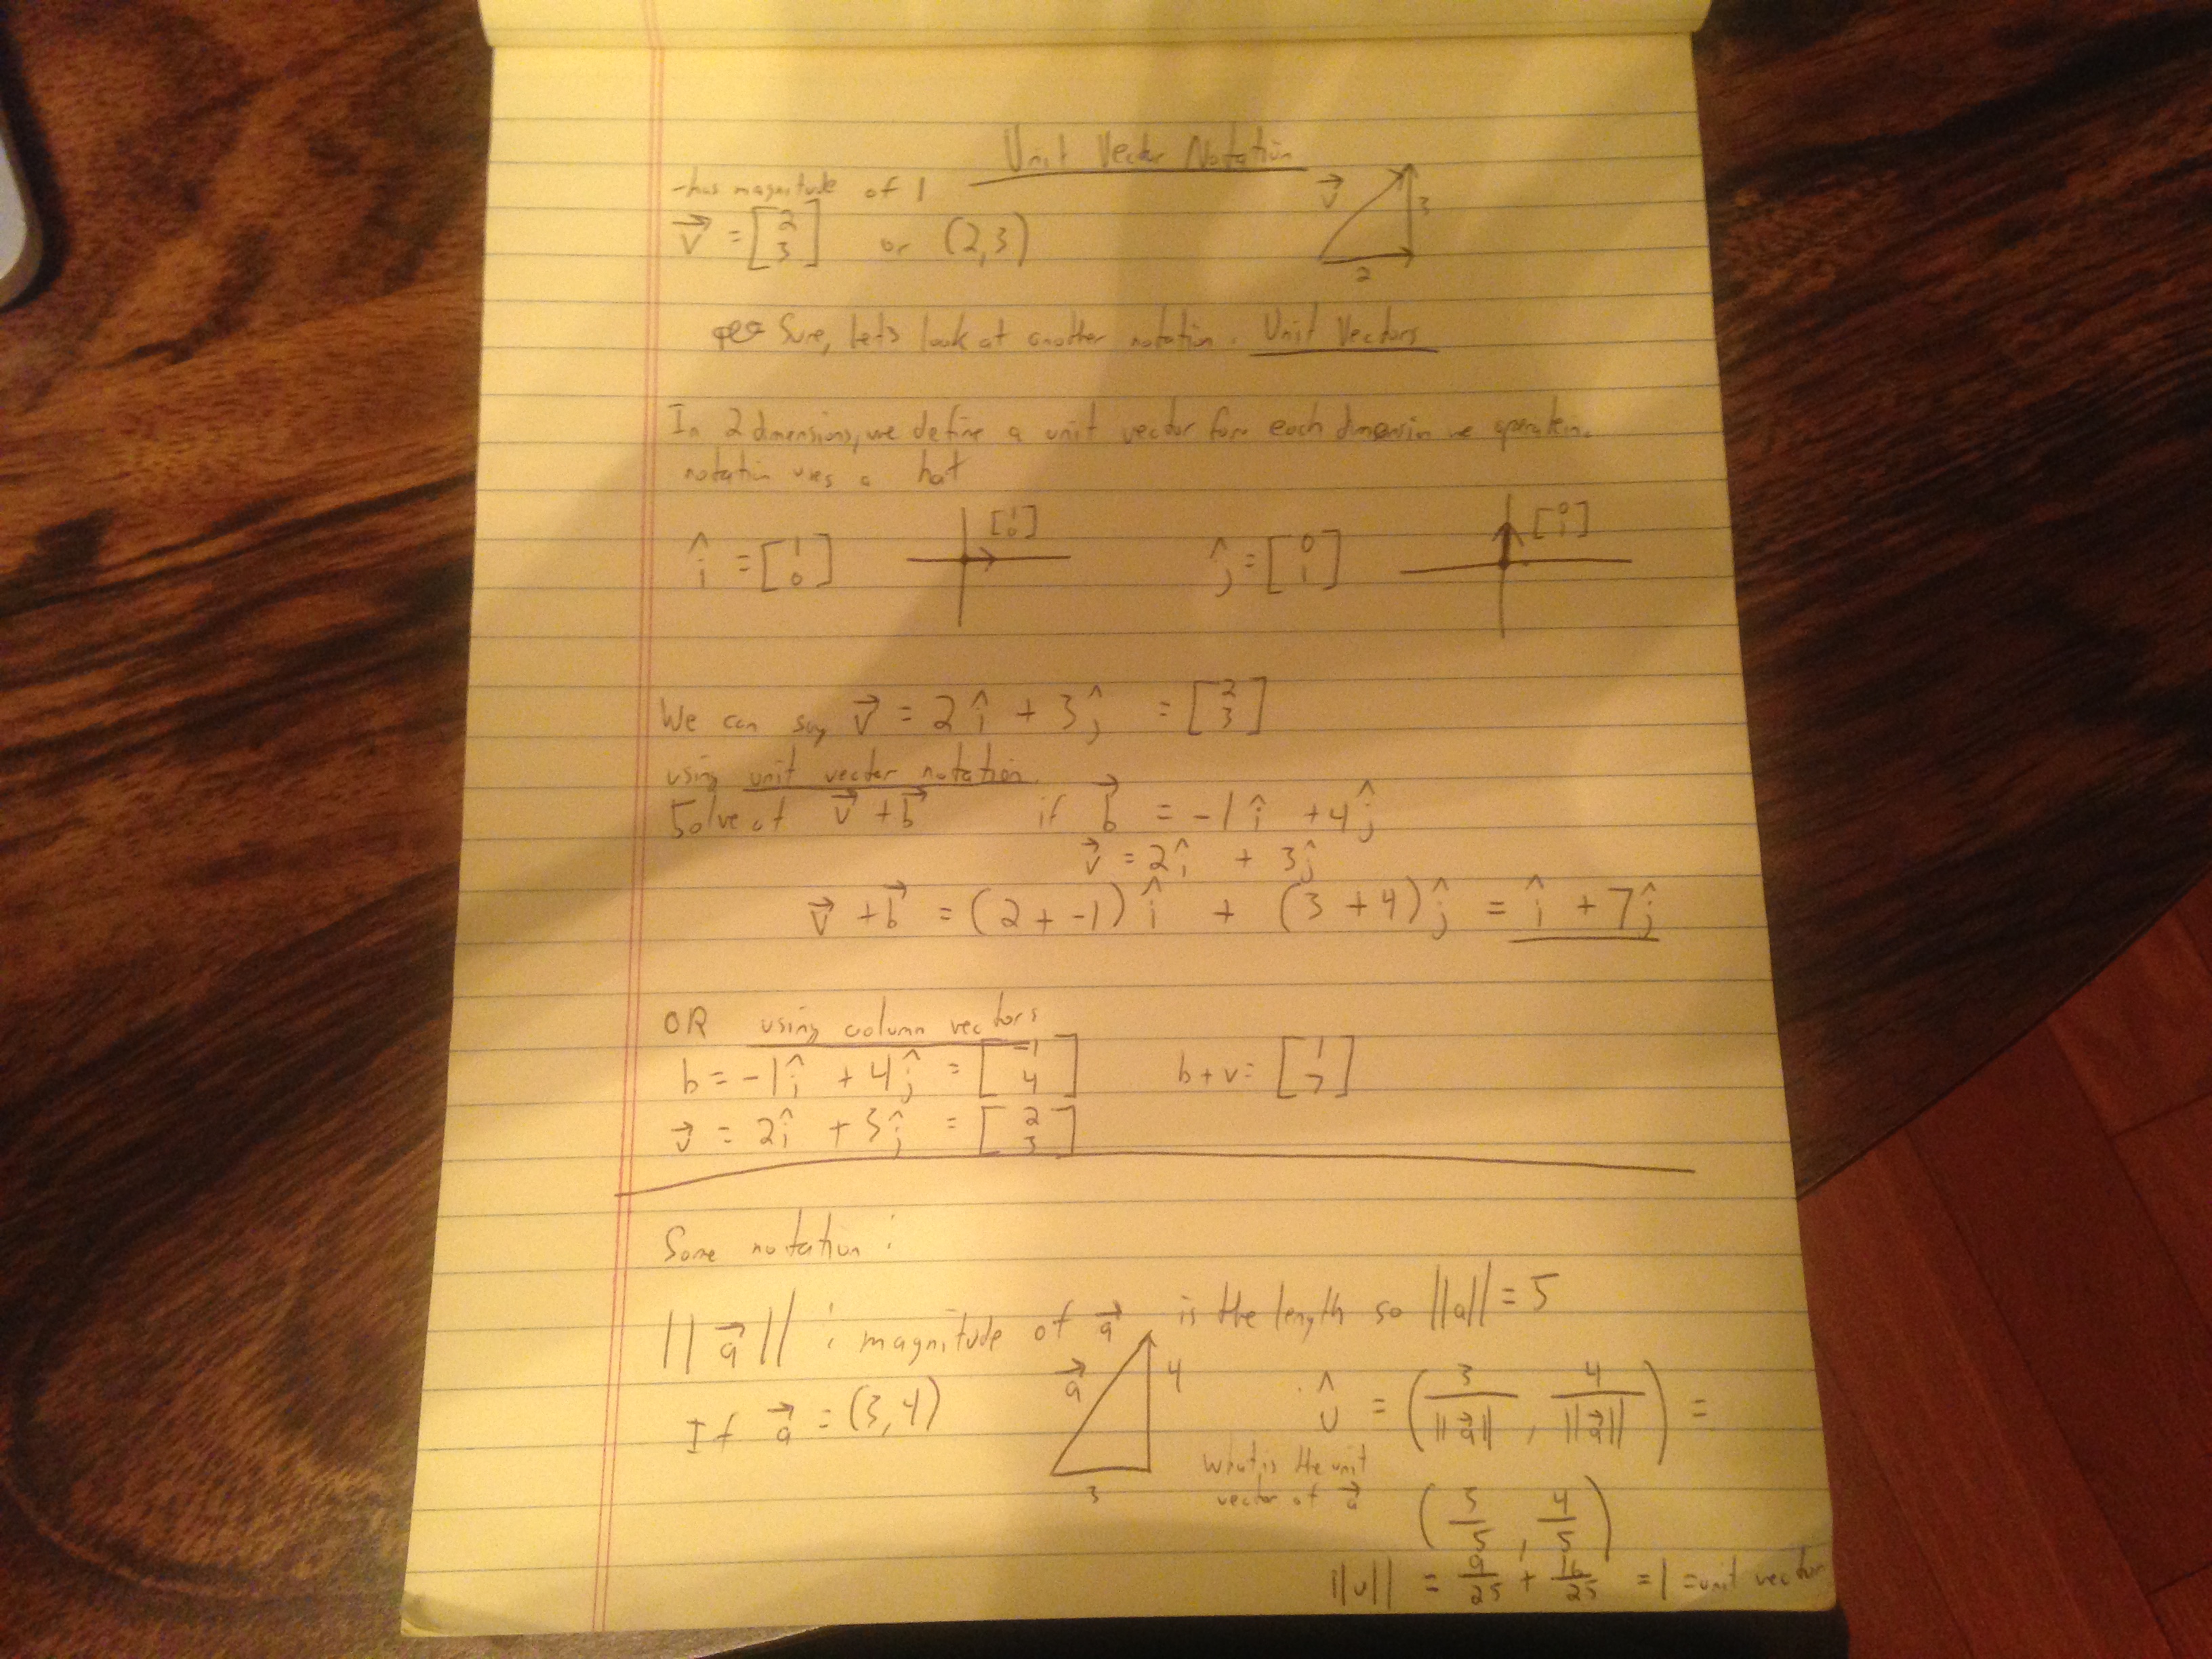 Unit Vector Notation
-has magnitude of 1
v⃗ = [2 3] or (2,3)
v⃗ 3
2
Sure, Let's look at another notation. Unit Vectors
In 2 dimensions, we define a unit vector for each dimension we operate in.
notation uses a hat
î = [1 0] [1 0] ĵ = [0 1] [0 1]
We can say v⃗ = 2î + 3ĵ = [2 3]
using unit vector notation.
Solve of v⃗ + b⃗ if b⃗ = -1î + 4ĵ
v⃗ = 2î + 3ĵ
v⃗ + b⃗ = (2 + -1)î + (3 + 4)ĵ = î + 7ĵ
OR using column vectors
b = -1î + 4ĵ = [-1 4] b + v = [1 7]
v⃗ = 2î + 3ĵ = [2 3]
Some notation:
||a⃗|| : magnitude of a⃗ is the length so ||a|| = 5
If a⃗ = (3,4) a⃗ 4 û = (3/||a⃗||, 4/||a⃗||) =
3
What is the unit
vector of a⃗
(3/5, 4/5)
||u|| = 9/25 + 16/25 = 1 = unit vector